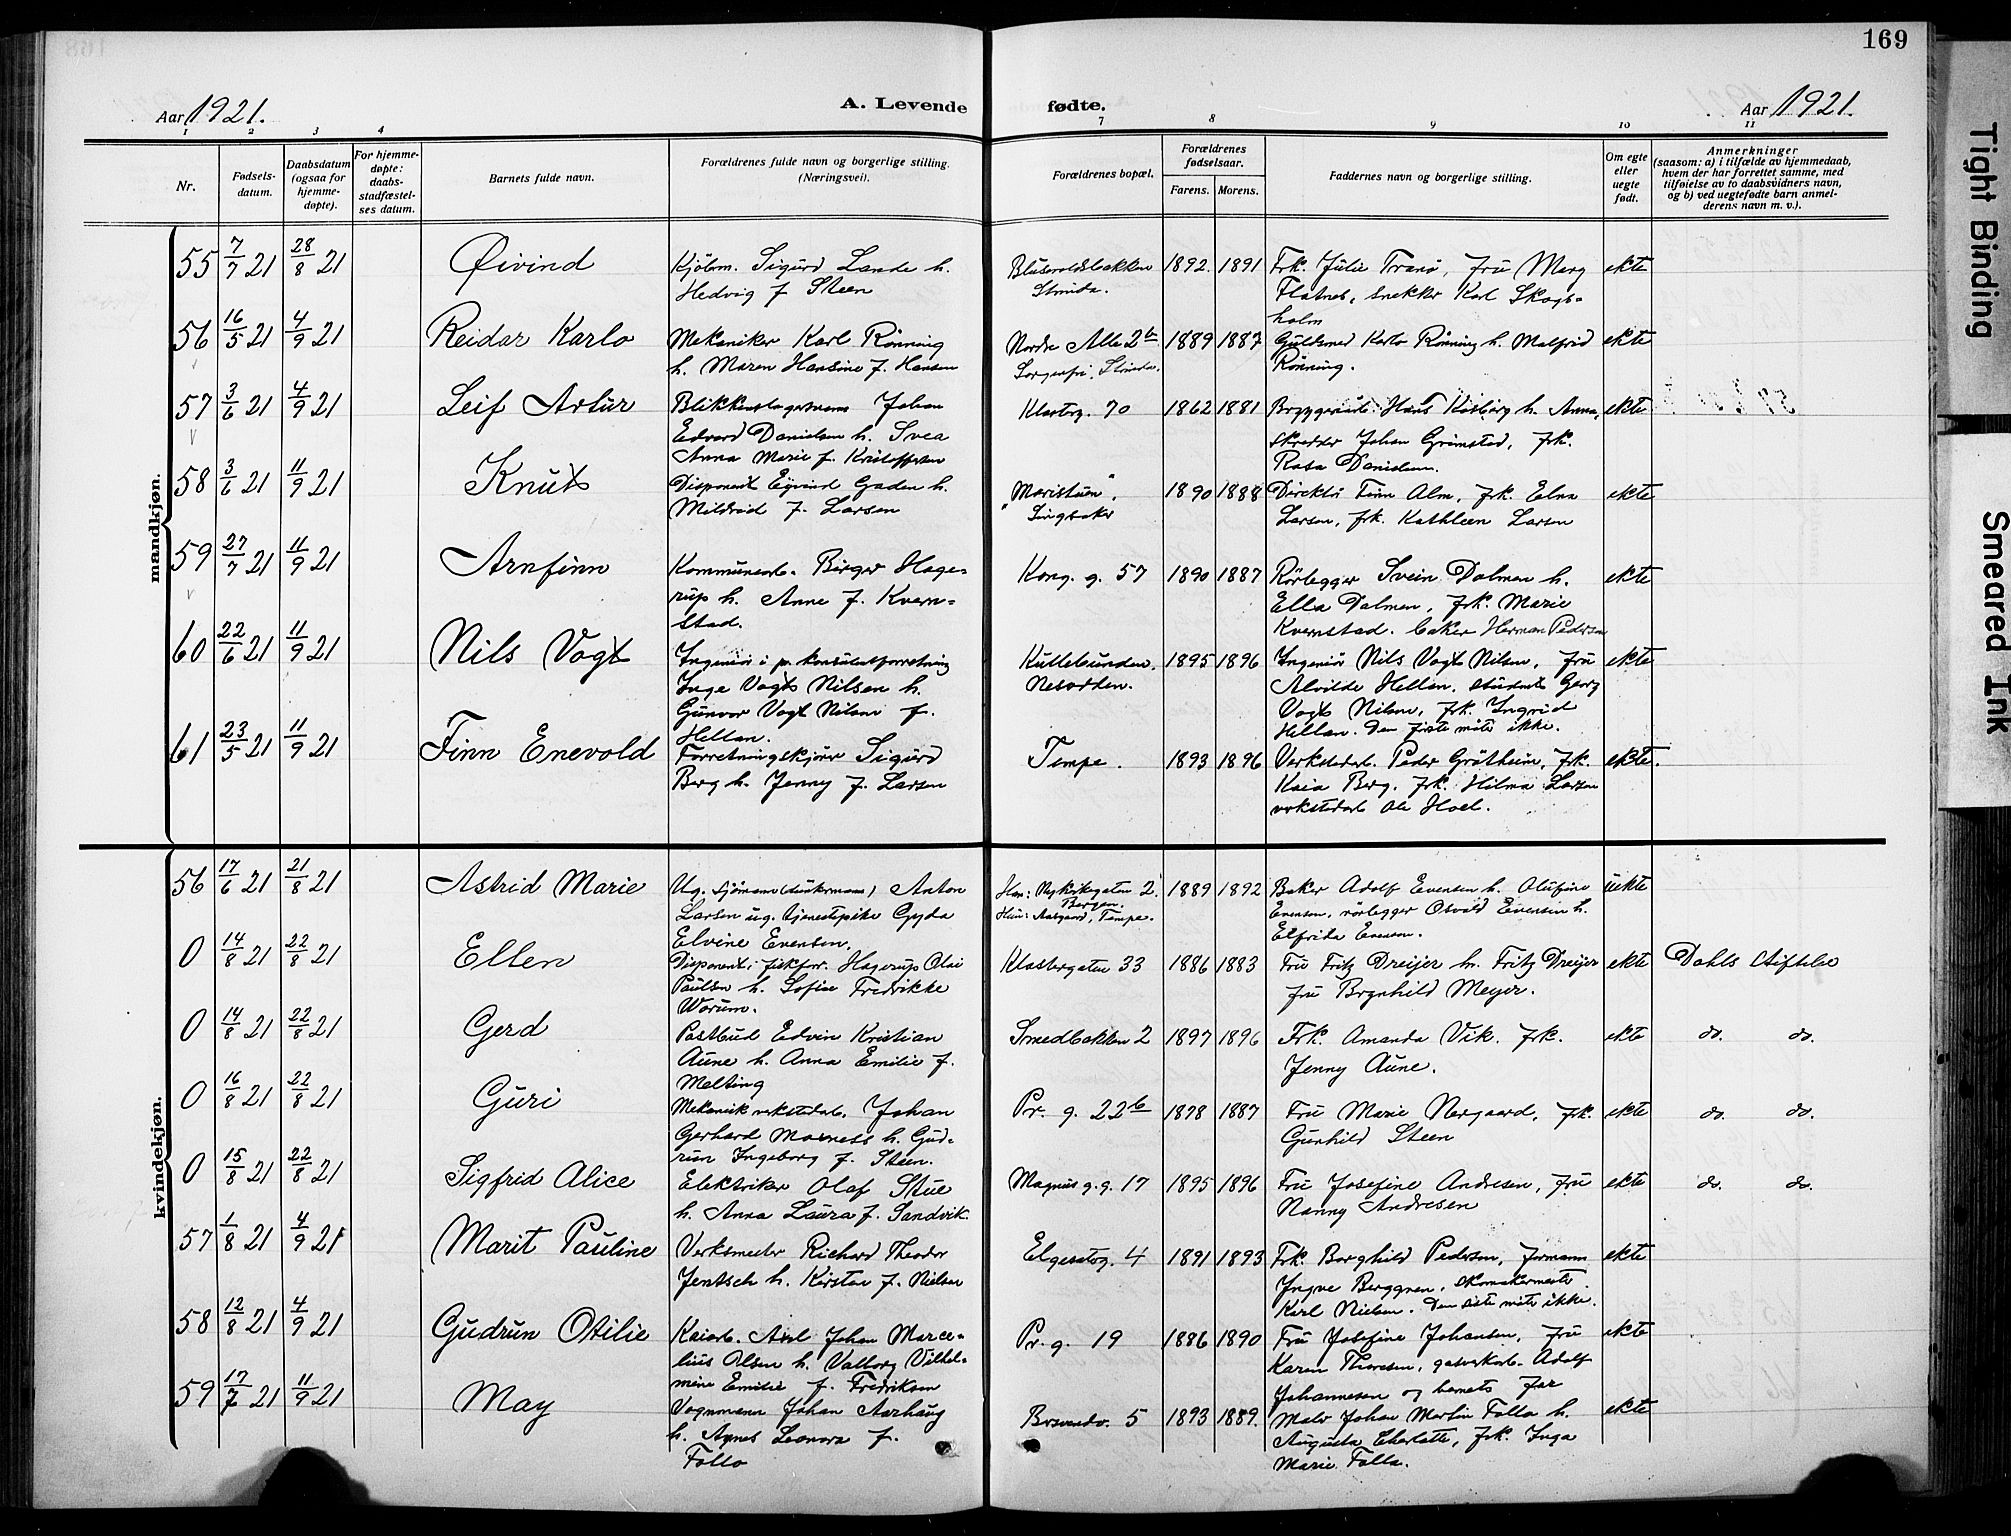 169
Aar 1921.
A. Levende fødte.
Aar 1921.
1 2 3 4 7 8 9 10 11
Nr.
Fødsels-
datum.
Daabsdatum
(ogsaa for
hjemme-
døpte).
For hjemme-
døpte:
daabs-
stadfæstel-
ses datum.
Barnets fulde navn.
Forældrenes fulde navn og borgerlige stilling.
(Næringsvei).
Forældrenes bopæl.
Forældrenes
fødselsaar.
Farens. Morens.
Faddernes navn og borgerlige stilling.
Om egte
eller
uegte
født.
Anmerkninger
(saasom: a) i tilfælde av hjemmedaab,
hvem der har forrettet samme, med
tilføielse av to daabsvidners navn,
og b) ved uegtefødte barn anmel-
derens navn m. v.).
mandkjøn.
55 7/7 21 28/8 21 Øivind Kjøbm. Sigurd Lande h. 1892. 1891 Frk. Julie Tranø, Fru Marg ekte
Hedvig f Steen Strinda. Flatnes, snekker Karl Skogs-
holm
56 16/5 21 4/9 21 Reidar Karlo Mekaniker Karl Rønning Nordre Alle 2b 1889 1887 Karlo Rønning h. Malfrid ekte
h. Maren Hansine f. Hansen Sorgenfri, Strinda. Rønning.
57 3/6 21 4/9 21 Leif Artur Blikkenslagersvenn Johan Klosterg. 70 1862 1881 Bryggeriarb. Hans h. Anna, ekte
Edvard Danielsen h. Svea skredder Johan Grimstad, frk.
Anna Marie f. Kristoffersen Rosa Danielsen.
58 3/6 21 11/9 21 Knut Disponent Eyvind Gaden h. "Maristuen", 1890 1888 Direktør Finn Alm, frk. Elna ekte
Mildrid f. Larsen Singsaker Larsen, frk. Kathleen Larsen
59 27/7 21 11/9 21 Arnfinn Kommunearb. Birger Hage- Kong. g. 57 1890 1887 Rørlegger Svein Dalmen h. ekte
rup h. Anne f. Kvern- Ella Dalmen, frk. Marie
stad. Kvernstad. baker Herman Pedersen
60 22/6 21 11/9 21 Nils Vogt Ingeniør i pr. konsulentforretning 1895 1896 Ingeniør Nils Vogt Nilsen, Fru ekte
Inge Vogt Nilsen h. Nesodden. Alvilde Hellan. student Georg
Gunvor Vogt Nilsen f. Vogt Nilsen, frk. Ingrid
Hellan. Hellan. Den første møtr ikke.
61 23/5 21 11/9 21 Finn Enevold Forretningskjører Sigurd Tempe. 1893 1896 Verkstedarb. Peder Gråtheim, frk. ekte.
Berg h. Jenny f. Larsen Kaia Berg. frk. Hilma Larsen
verkstedarb Ole Hoel.
kvindekjøn.
56 17/6 21 21/8 21 Astrid Marie Ug. sjømann (donkermann) Anton Han: Nykirkegaten 2. 1889 1892 Baker Adolf Evensen h. Olufine uekte
Bergen.
Larsen ug. tjenestepike Gyda Hun: Aasgaard, Tempe. Evensen, rørlegger Osvald Evensen h.
Elvine Evensen. Elfrida Evensen.
0 14/8 21 22/8 21 Ellen Disponent i fiskfor. Hagerup Olai Klostergaten 33 1886 1883 Fru Fritz Dreijer hr. Fritz Dreijer ekte Dahls stiftelse
Paulsen h. Sofie Fredrikke fru Brynhild Meyer.
Worum.
0 14/8 21 22/8 21 Gerd Postbud Edvin Kristian Smedbakken 2 1897 1896 Frk. Amanda Vik. frk. ekte do. do.
Aune h. Anna Emilie f. Jenny Aune.
Melting
0 16/8 21 22/8 21 Guri Mekanisk verkstedarb. Johan Pr. g. 22b 1878 1887 Fru Marie Nergaard, frk. ekte do. do.
Gerhard Moxness h. Gud- Gunhild Steen
run Ingeborg f. Steen.
0 15/8 21 22/8 21 Sigfrid Alice Elektriker Olaf Stue Magnus g.g. 17 1895 1896 Fru Josefine Andresen, fru ekte do. do.
h. Anna Laura f. Sandvik. Nanny Andresen
57 1/8 21 4/9 21 Marit Pauline Verksmester Richard Theodor Elgesetg. 4 1891 1893 Frk. Borghild Pedersen, formann ekte
Jentsch h. Kirsten f. Nielsen Yngve Berggren. skomakermester
Karl Nielsen. Den siste møtr ikke.
58 12/8 21 4/9 21 Gudrun Otilie Kaiarb. Axel Johan Marce- Pr. g. 19 1886 1890 Fru Josefine Johansen, fru ekte
lius Olsen h. Valborg Vilhel- Karen Thoresen, gasverkarb. Adolf
mine Emilie f. Fredriksen Johannesen og barnets far
59 17/7 21 11/9 21 May Vognmann Johan Aarhaug 5 1893 1889. Maler Johan Martin Follo h. ekte
h. Agnes Leonora f. Augusta Charlotte, frk. Inga
Follo Marie Follo.
Tight Binding
Smeared Ink